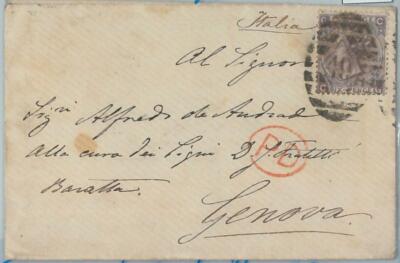 Italia
Al Signor
Sigri Alfredo de Andrad
alla cura dei Sigri D. J. Fratelli
Baratta.
PD
Genova.